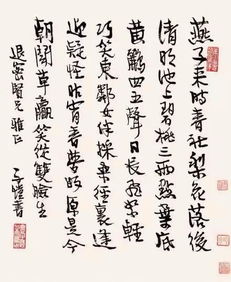 燕子来時春社梨花落後
清明池上碧桃三两點葉底
黄鸝四五聲日長飛絮輕
巧笑東鄰女伴採桑徑裏逢
迎疑怪昨宵春夢好原是今
朝鬥草贏笑從雙臉生
退密賢兄雅正
子愷書